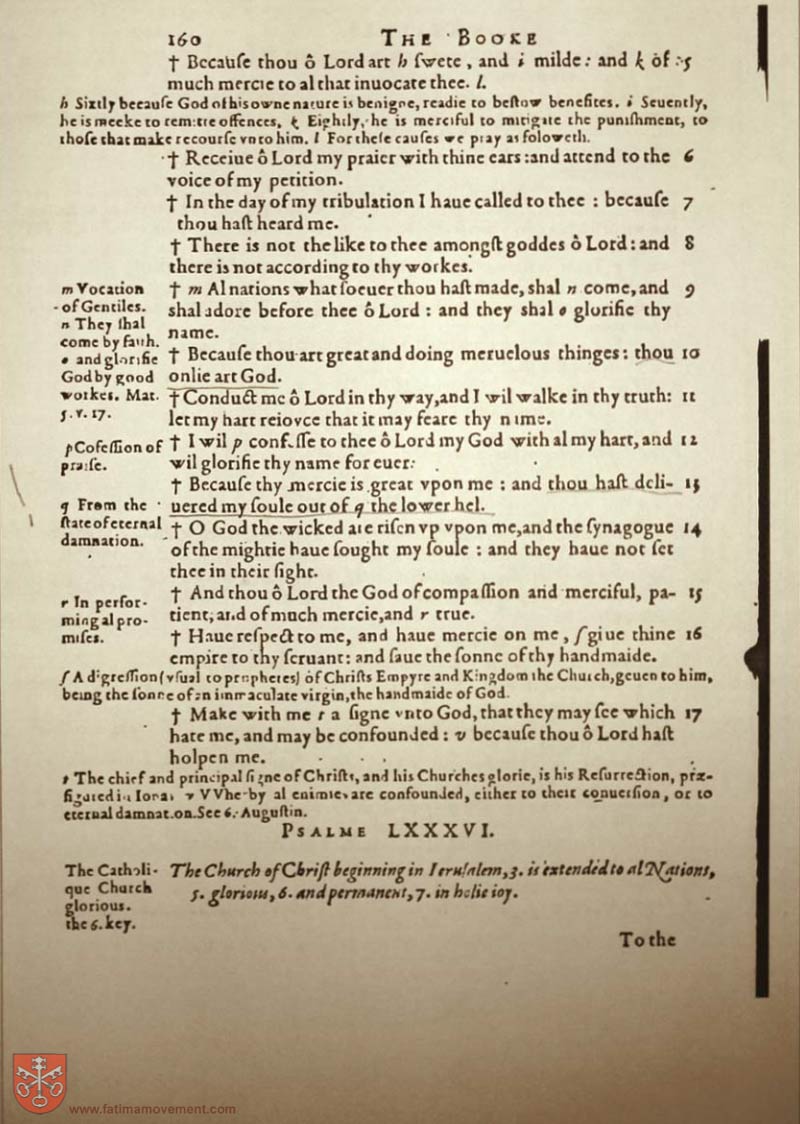 160 THE BOOKE
† Becauſe thou ô Lord art h ſwete, and i milde: and k of 5
much mercie to al that inuocate thee. l.
h Sixtly becauſe God of his owne nature is benigne, readie to beſtow benefites. i Seuently,
he is meeke to remitte offences. k Eightly, he is merciful to mitigate the puniſhment, to
thoſe that make recourſe vnto him. l For theſe cauſes we pray as foloweth.
† Receiue ô Lord my praier with thine ears: and attend to the 6
voice of my petition.
† In the day of my tribulation I haue called to thee: becauſe 7
thou haſt heard me.
† There is not the like to thee amongſt goddes ô Lord: and 8
there is not according to thy workes.
m Vocation
of Gentiles.
n They ſhal
come by faith.
o and glorifie
God by good
workes. Mat.
5. v. 17.
† m Al nations whatſoeuer thou haſt made, shal n come, and 9
shal adore before thee ô Lord: and they shal o glorifie thy
name.
† Becauſe thou art great and doing meruelous thinges: thou 10
onlie art God.
† Conduct me ô Lord in thy way, and I wil walke in thy truth: 11
let my hart reioyce that it may feare thy name.
p Cōfeſſion of
praiſe.
† I wil p confeſſe to thee ô Lord my God with al my hart, and 12
wil glorifie thy name for euer:
† Becauſe thy mercie is great vpon me: and thou haſt deli- 13
uered my ſoule out of q the lower hel.
q From the
ſtate of eternal
damnation.
† O God the wicked are riſen vp vpon me, and the ſynagogue 14
of the mightie haue ſought my ſoule: and they haue not ſet
thee in their ſight.
r In perfor-
ming al pro-
miſes.
† And thou ô Lord the God of compaſſion and merciful, pa- 15
tient, and of much mercie, and r true.
† Haue reſpect to me, and haue mercie on me, ſ giue thine 16
empire to thy ſeruant: and ſaue the ſonne of thy handmaide.
ſ A digreſſion (vſual to propheres) of Chriſts Empyre and Kingdom the Church, geuen to him,
being the ſonne of an immaculate virgin, the handmaide of God.
† Make with me t a ſigne vnto God, that they may ſee which 17
hate me, and may be confounded: v becauſe thou ô Lord haſt
holpen me.
t The chief and principal ſigne of Chriſts, and his Churches glorie, is his Reſurrection, præ-
figured in Ionas v VVherby al enimies are confounded, either to their conuerſion, or to
eternal damnation. See S. Auguſtin.
PSALME LXXXVI.
The Catholi-
que Church
glorious.
the 6. key.
The Church of Chriſt beginning in Ieruſalem, 3. is extended to al Nations,
5. glorious, 6. and permanent, 7. in holie ioy.
To the
www.fatimamovement.com